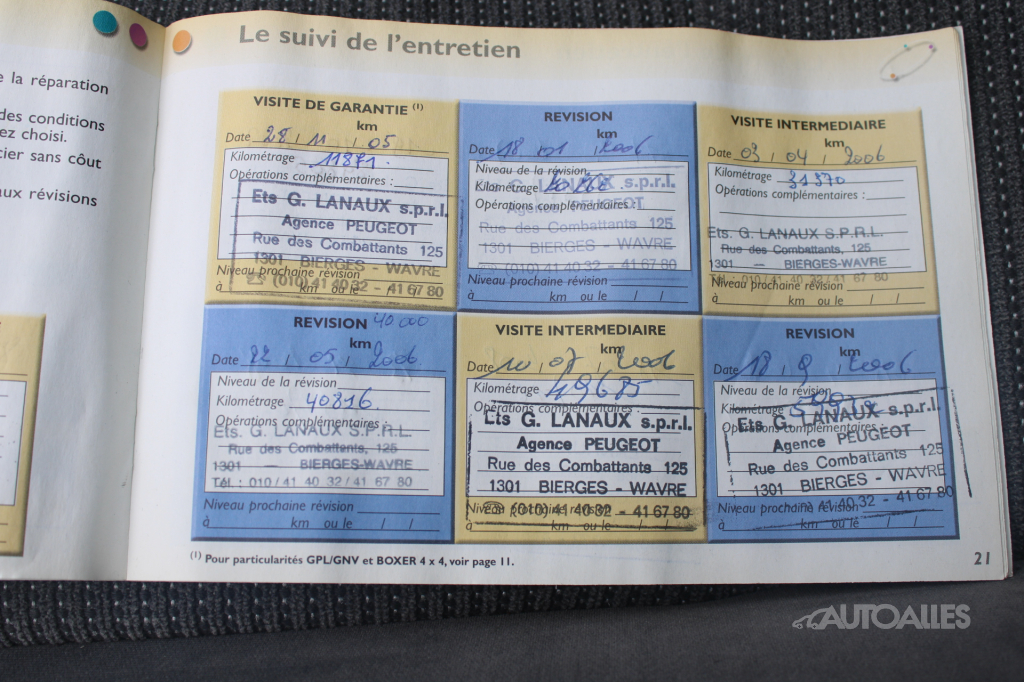 e la réparation
des conditions
ez choisi.
cier sans coût
aux révisions
Le suivi de l'entretien
VISITE DE GARANTIE (1)
km
Date 28 / 11 / 05
Kilométrage 11871.
Opérations complémentaires :
Ets G. LANAUX s.p.r.l.
Agence PEUGEOT
Rue des Combattants 125
1301 BIERGES - WAVRE
Niveau prochaine révision
☎ (010) 41 40 32 - 41 67 80
à km ou le / /
REVISION
km
Date 18 / 01 / 2006
Niveau de la révision
Kilométrage
Opérations complémentaires :
G. LANAUX s.p.r.l.
Agence PEUGEOT
Rue des Combattants 125
1301 BIERGES - WAVRE
☎ (010) 41 40 32 - 41 67 80
Niveau prochaine révision
à km ou le / /
VISITE INTERMEDIAIRE
km
Date 03 / 04 / 2006
Kilométrage 31370
Opérations complémentaires :
Ets. G. LANAUX S.P.R.L.
Rue des Combattants, 125
1301 — BIERGES-WAVRE
Tél : 010 / 41 40 32 / 41 67 80
Niveau prochaine révision
à km ou le / /
REVISION 40 000
km
Date 22 / 05 / 2006
Niveau de la révision
Kilométrage 40816
Opérations complémentaires :
Ets. G. LANAUX S.P.R.L.
Rue des Combattants, 125
1301 — BIERGES-WAVRE
Tél : 010 / 41 40 32 / 41 67 80
Niveau prochaine révision
à km ou le / /
VISITE INTERMEDIAIRE
km
Date 10 / 07 / 2006
Kilométrage 49685
Opérations complémentaires :
Ets G. LANAUX s.p.r.l.
Agence PEUGEOT
Rue des Combattants 125
1301 BIERGES - WAVRE
Niveau prochaine révision
☎ (010) 41 40 32 - 41 67 80
à km ou le / /
REVISION
km
Date 18 / 9 / 2006
Niveau de la révision
Kilométrage
Opérations complémentaires :
Ets G. LANAUX s.p.r.l.
Agence PEUGEOT
Rue des Combattants 125
1301 BIERGES - WAVRE
Niveau prochaine révision
41 40 32 - 41 67 80
à km ou le / /
(1) Pour particularités GPL/GNV et BOXER 4 x 4, voir page 11.
21
AUTOALLES